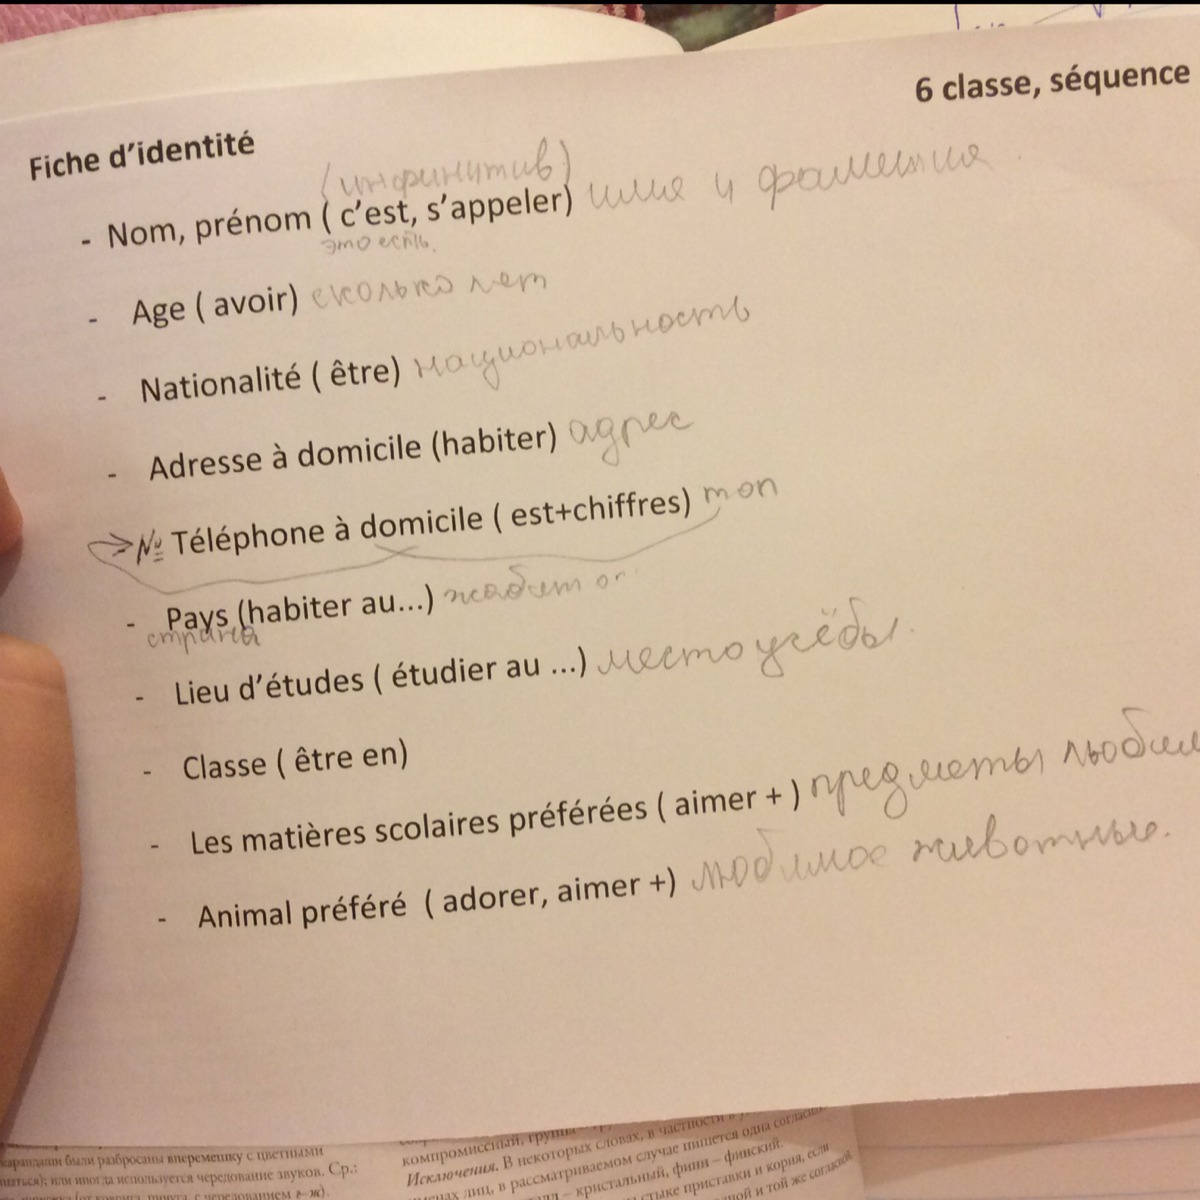 6 classe, séquence
Fiche d'identité
(инфинитив)
- Nom, prénom ( c'est, s'appeler) имя и фамилия
это есть.
- Age ( avoir) сколько лет
- Nationalité ( être) национальность
- Adresse à domicile (habiter) адрес
№ Téléphone à domicile ( est+chiffres) mon
- Pays (habiter au...)
страна
- Lieu d'études ( étudier au ...) место учёбы.
- Classe ( être en)
- Les matières scolaires préférées ( aimer + ) предметы любим
- Animal préféré ( adorer, aimer +) любимое животные.
карандаши были разбросаны вперемешку с цветными
или иногда используется чередование звуков. Ср.:
компромиссный, группа
Исключения. В некоторых словах, в частности в
лиц, в рассматриваемом случае пишется одна
– кристальный, финн – финский.
стыке приставки и корня, если
и той же